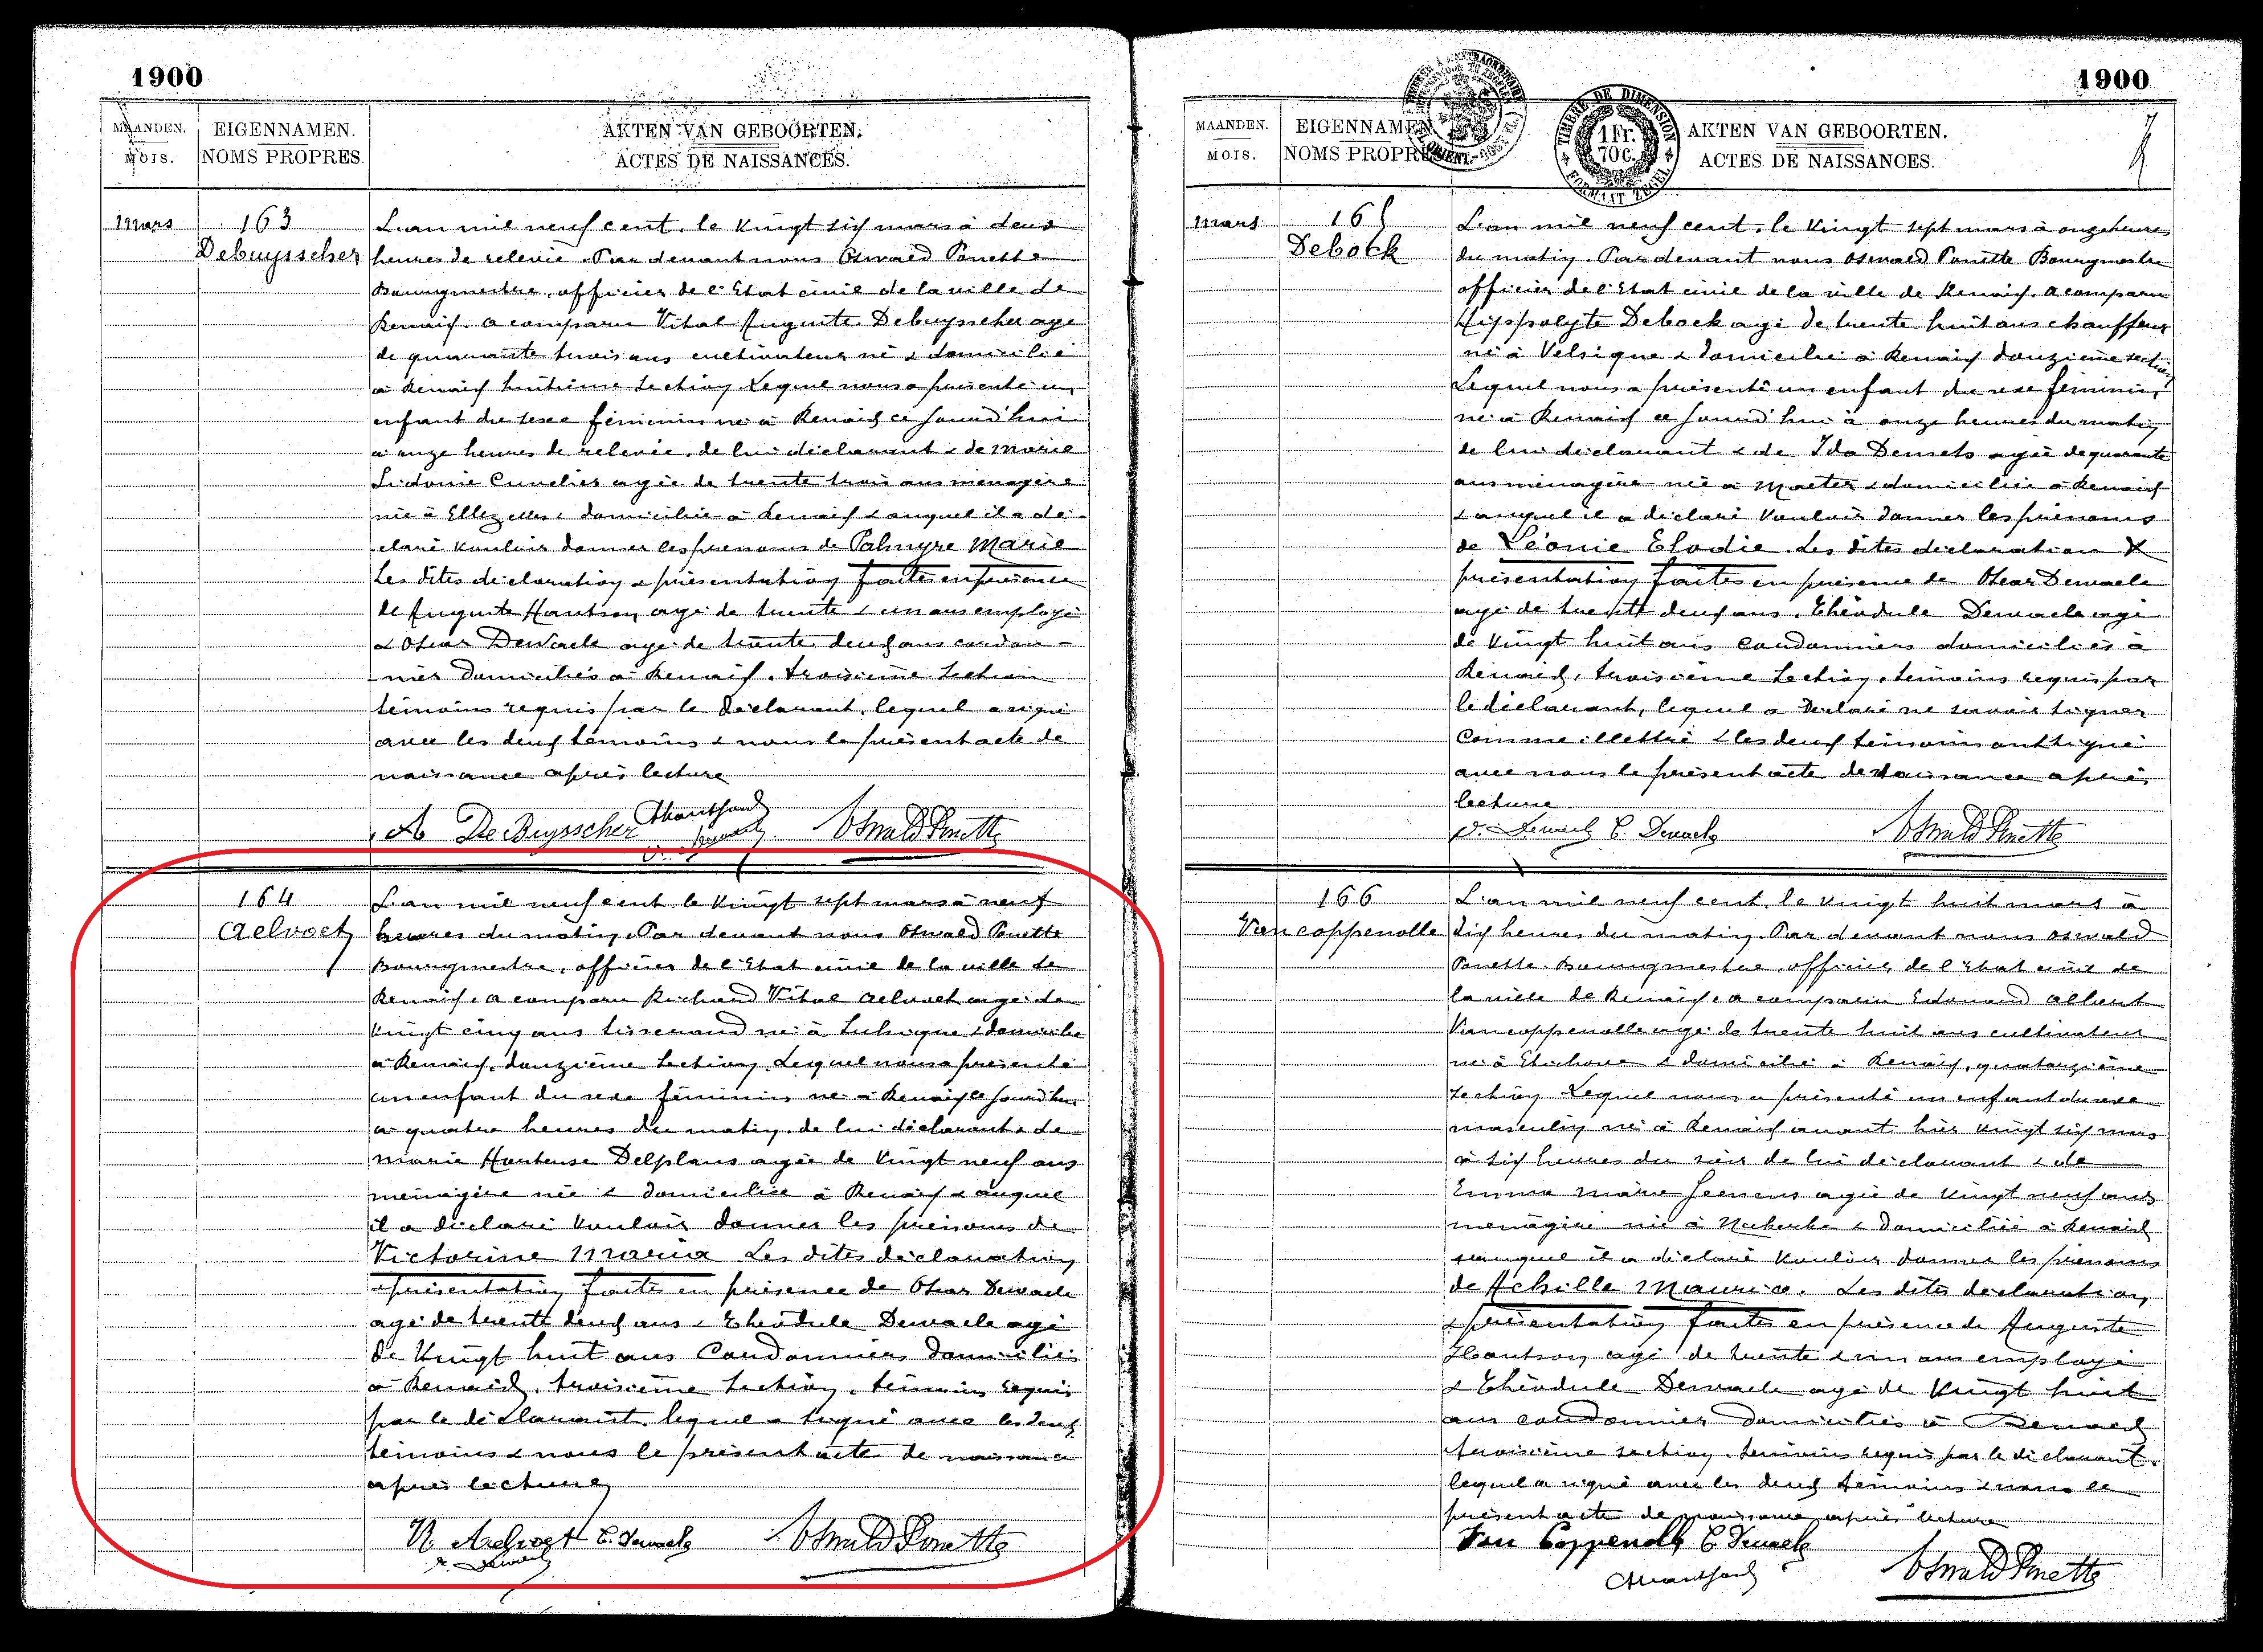 1900
MAANDEN.
MOIS.
EIGENNAMEN.
NOMS PROPRES.
AKTEN VAN GEBOORTEN.
ACTES DE NAISSANCES.
Mars
163
Debuysscher
L'an mil neuf cent, le vingt six mars à deux
heures de relevée. Par devant nous Oswald Ponette
Bourgmestre, officier de l'Etat civil de la ville de
Renaix. a comparu Vital Auguste Debuysscher agé
de quarante trois ans cultivateur né & domicilié
à Renaix huitième section Lequel nous a présenté un
enfant du sexe féminin né à Renaix ce jourd'hui
à onze heures de relevée, de lui déclarant & de Marie
Sidonie Cunelier agée de trente trois ans ménagère
née à Ellezelles & domiciliée à Renaix & auquel il a dé-
claré vouloir donner les prénoms de Palmyre Marie
Les dites déclaration & présentation faites en présence
de Auguste Hantson agé de trente & un ans employé
& Oscar Dewaele agé de trente deux ans cordon-
nier domiciliés à Renaix. troisième section
témoins requis par le déclarant, lequel a signé
avec les deux témoins & nous le présent acte de
naissance après lecture
De Buysscher
Oswald Ponette
164
Aelvoet
L'an mil neuf cent le vingt sept mars à neuf
heures du matin. Par devant nous Oswald Ponette
Bourgmestre, officier de l'Etat civil de la ville de
Renaix. a comparu Richard Vital Aelvoet agé de
vingt cinq ans tisserand né à & domicilié
à Renaix, douzième section. Lequel nous a présenté
un enfant du sexe féminin né à Renaix ce jourd'hui
à quatre heures du matin, de lui déclarant & de
Marie Hortense Delplans agée de vingt neuf ans
ménagère née & domiciliée à Renaix & auquel
il a déclaré vouloir donner les prénoms de
Victorine Maria Les dites déclaration
& présentation faites en présence de Oscar Dewaele
agé de trente deux ans & Théodule Dewaele agé
de vingt huit ans Cordonniers domiciliés
à Renaix. troisième section, témoins requis
par le déclarant, lequel a signé avec les deux
témoins & nous le présent acte de naissance
après lecture
Aelvoet
Oswald Ponette
1900
MAANDEN.
MOIS.
EIGENNAMEN
NOMS PROPRES
TIMBRE DE DIMENSION
1 Fr.
70 C.
FORMAAT ZEGEL
AKTEN VAN GEBOORTEN.
ACTES DE NAISSANCES.
Mars
165
Debock
L'an mil neuf cent, le vingt sept mars à onze heures
du matin. Par devant nous Oswald Ponette Bourgmestre
officier de l'Etat civil de la ville de Renaix. a comparu
Hippolyte Debock agé de trente huit ans chauffeur
né à Velsique & domicilié à Renaix douzième section
Lequel nous a présenté un enfant du sexe féminin,
né à Renaix ce jourd'hui à onze heures du matin
de lui déclarant & de Ida Demets agée de quarante
ans ménagère née à Maeter & domiciliée à Renaix
& auquel il a déclaré vouloir donner les prénoms
de Léonie Elodie. Les dites déclaration &
présentation faites en présence de Oscar Dewaele
agé de trente deux ans, Théodule Dewaele agé
de vingt huit ans Cordonniers domiciliés à
Renaix, troisième section, témoins requis par
le déclarant, lequel a déclaré ne savoir signer
comme illettré & les deux témoins ont signé
avec nous le présent acte de naissance après
lecture
Oswald Ponette
166
Van coppenolle
L'an mil neuf cent, le vingt huit mars à
dix heures du matin. Par devant nous Oswald
Ponette. Bourgmestre, officier de l'Etat civil de
la ville de Renaix. a comparu Edouard Albert
Vancoppenolle agé de trente huit ans cultivateur
né à Etichove & domicilié à Renaix, quatorzième
section Lequel nous a présenté un enfant du sexe
masculin né à Renaix avant hier vingt six mars
à six heures du soir de lui déclarant & de
Emma Marie agée de vingt neuf ans
ménagère née à & domiciliée à Renaix
& auquel il a déclaré vouloir donner les prénoms
de Achille Maurice. Les dites déclaration
& présentation faites en présence de Auguste
Hantson agé de trente & un ans employé
& Théodule Dewaele agé de vingt huit
ans cordonnier domiciliés à Renaix
troisième section, témoins requis par le déclarant.
lequel a signé avec les deux témoins & nous le
présent acte de naissance après lecture
Van Coppenolle
Oswald Ponette